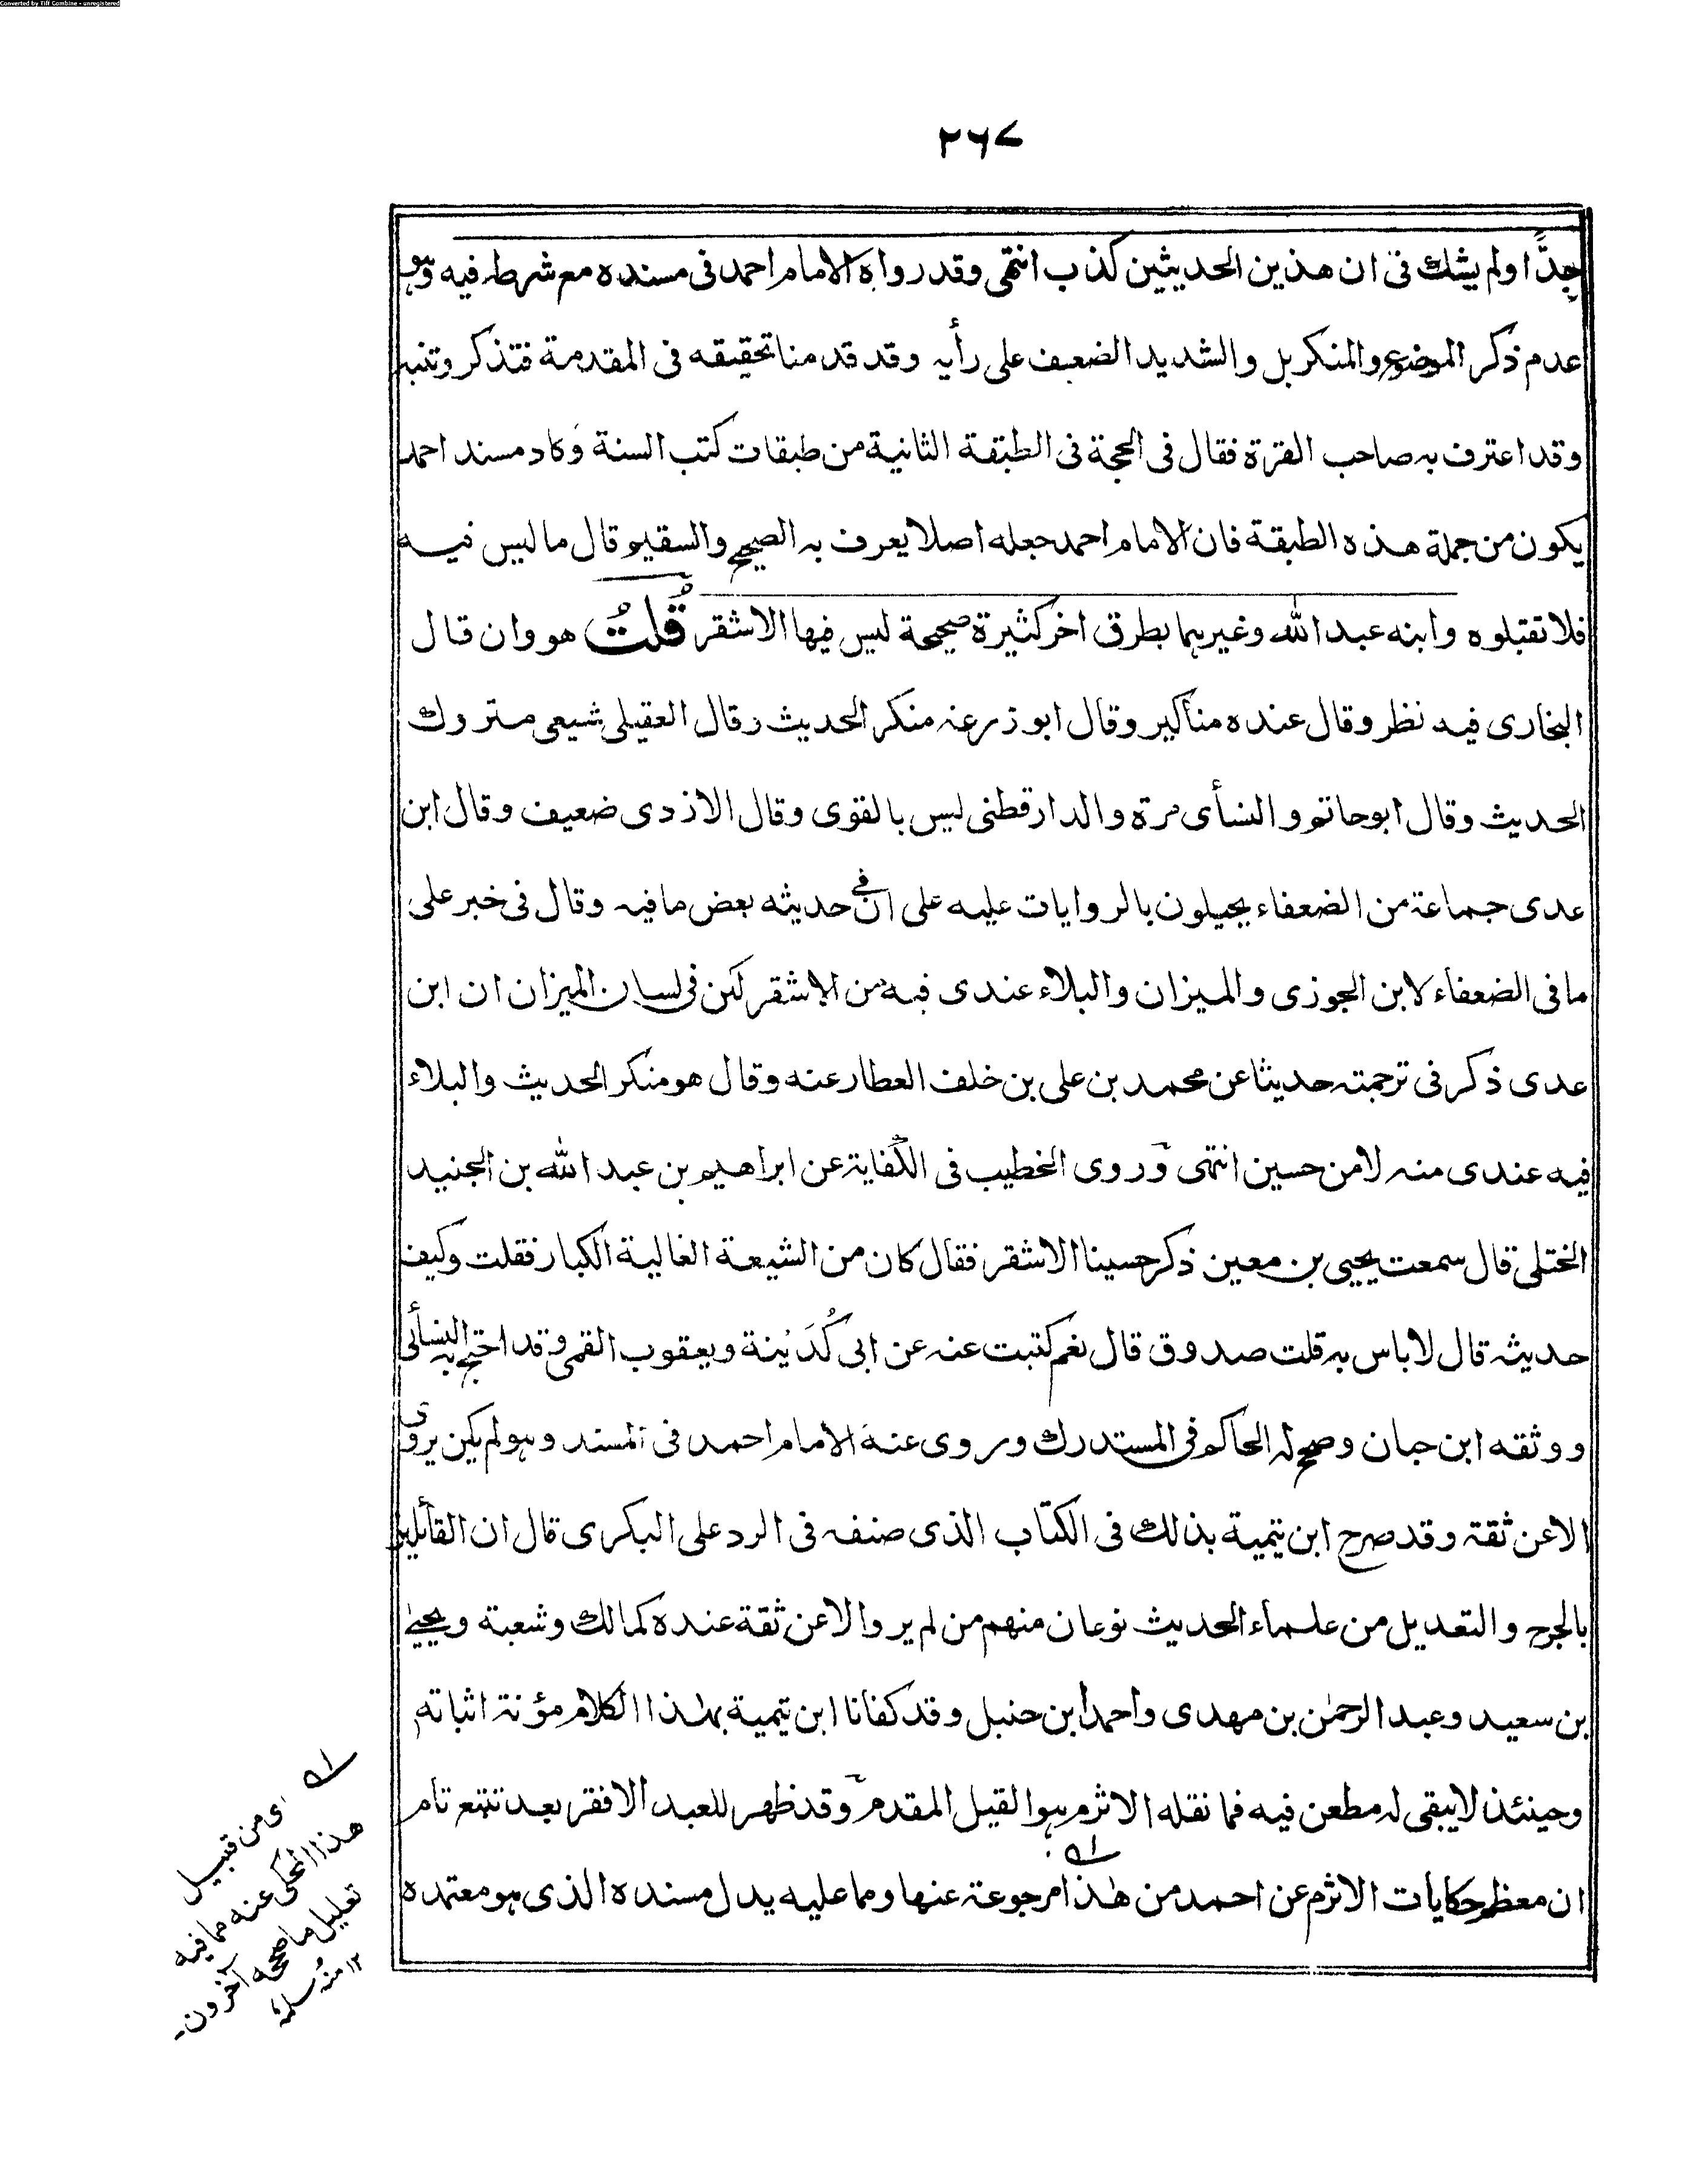 Converted by Tiff Combine - unregistered
۲۶۷
جدًّا ولم يشك فى ان هذين الحديثين كذب انتهى وقد رواه الامام احمد فى مسنده مع شرط فيه وهو
عدم ذكر الموضوع والمنكر بل والشديد الضعيف على رأيه وقد قدمنا تحقيقه فى المقدمة فتذكر وتنبه
وقد اعترف به صاحب القرة فقال فى الحجة فى الطبقة الثانية من طبقات كتب السنة وكاد مسند احمد
يكون من جملة هذه الطبقة فان الامام احمد جعله اصلا يعرف به الصحيح والسقيم قال ما ليس فيه
فلا تقبلوه وابنه عبد الله وغيرهما بطرق اخر كثيرة صحيحة ليس فيها الاشقر قُلتُ هو وان قال
البخارى فيه نظر وقال عنده مناكير وقال ابو زرعة منكر الحديث وقال العقيلى شيعى متروك
الحديث وقال ابو حاتم والنسأى مرة والدارقطنى ليس بالقوى وقال الازدى ضعيف وقال ابن
عدى جماعة من الضعفاء يحيلون بالروايات عليه على ان فى حديثه بعض ما فيه وقال فى خبر على
ما فى الضعفاء لابن الجوزى والميزان والبلاء عندى فيه من الاشقر لكن فى لسان الميزان ان ابن
عدى ذكر فى ترجمته حديثا عن محمد بن على بن خلف العطار عنه وقال هو منكر الحديث والبلاء
فيه عندى منه لا من حسين انتهى وروى الخطيب فى الكفاية عن ابراهيم بن عبد الله بن الجنيد
الختلى قال سمعت يحيى بن معين ذكر حسينا الاشقر فقال كان من الشيعة الغالية الكبار فقلت وكيف
حديثه قال لا باس به قلت صدوق قال نعم كتبت عنه عن ابى كُدَيْنة ويعقوب القمى وقد احتج به النسأئى
ووثقه ابن حبان وصحح له الحاكم فى المستدرك وروى عنه الامام احمد فى المسند وهو لم يكن يروى
الا عن ثقة وقد صرح ابن تيمية بذلك فى الكتاب الذى صنفه فى الرد على البكرى قال ان القائلين
بالجرح والتعديل من علماء الحديث نوعان منهم من لم يرو الا عن ثقة عنده كمالك وشعبة ويحيى
بن سعيد وعبد الرحمٰن بن مهدى واحمد ابن حنبل وقد كفانا ابن تيمية بهٰذا الكلام مؤنة اثباته
وحينئذ لا يبقى له مطعن فيه فما نقله الاثرم هو القيل المقدم وقد ظهر للعبد الافقر بعد تتبع تام
ان معظم حكايات الاثرم عن احمد من هٰذا مرجوعة عنها ومما عليه يدل مسنده الذى هو معتمده
اى من قبيل
هذا المحكى عنه مما فيه
تعليل ما صححه آخرون۔
۱۲ منه سلمه